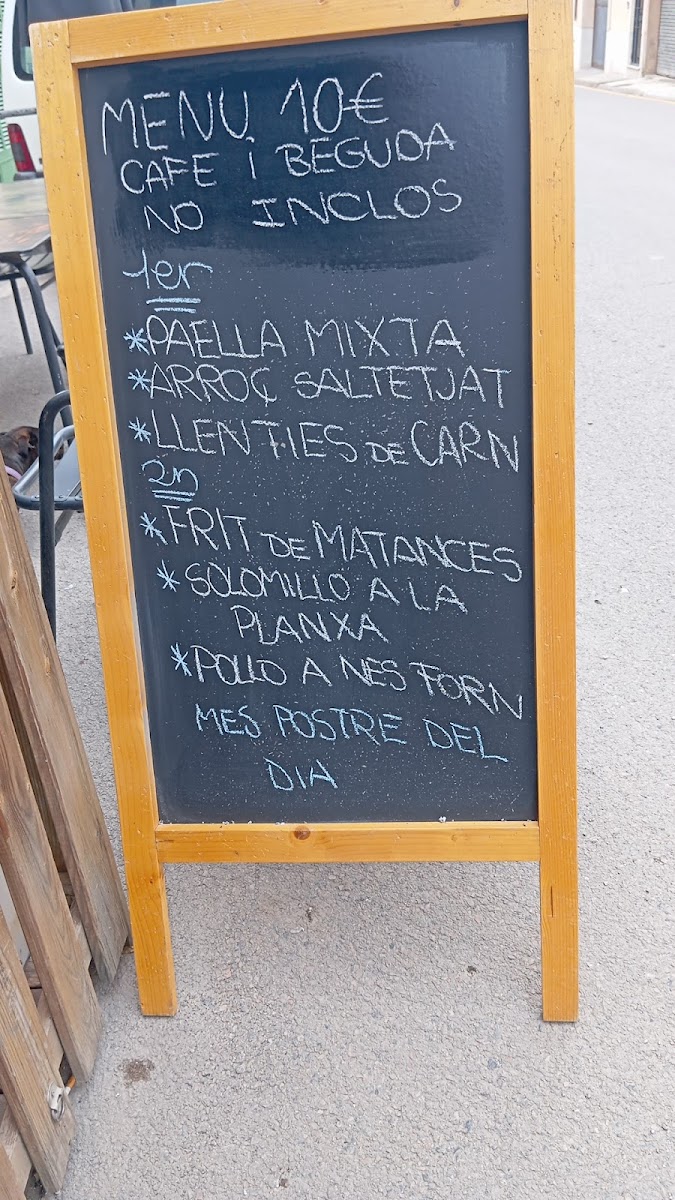 MENU 10€
CAFE i BEGUDA
NO INCLOS
1er
*PAELLA MIXTA
*ARROÇ SALTETJAT
*LLENTIES DE CARN
2n
*FRIT DE MATANCES
*SOLOMILLO A LA
PLANXA
*POLLO A NES FORN
MES POSTRE DEL
DIA